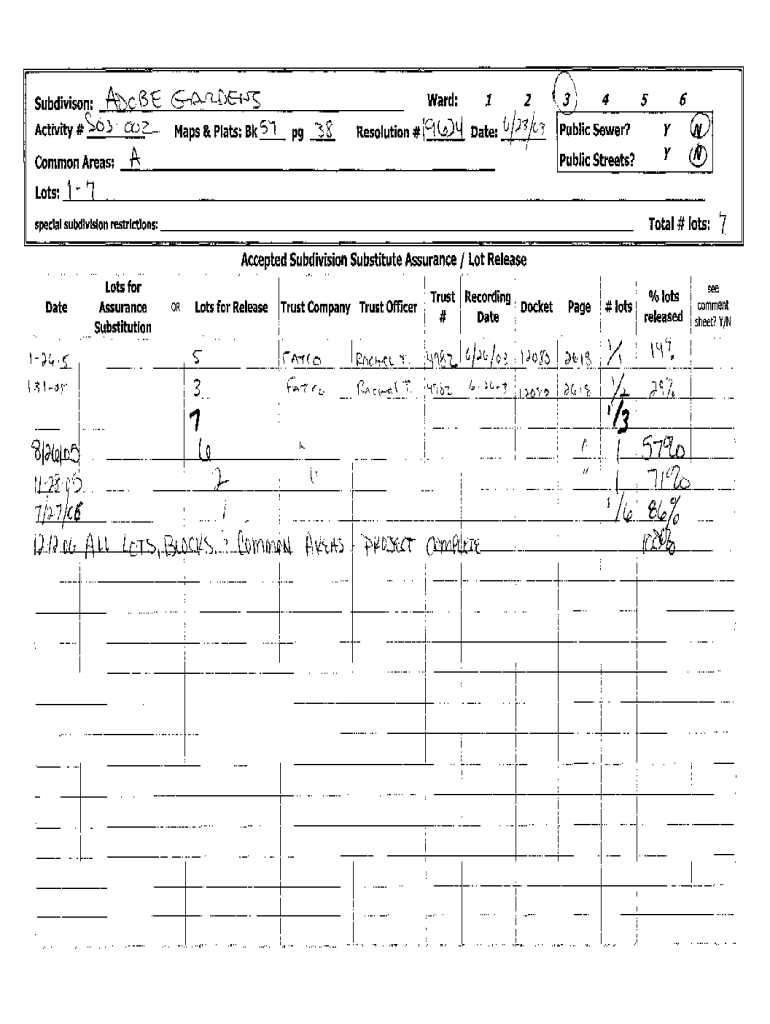 Subdivison: ADOBE GARDENS Ward: 1 2 3 4 5 6
Activity # S03-002 Maps & Plats: Bk 57 pg 38 Resolution # 19624 Date: 6/23/03 Public Sewer? Y N
Common Areas: A Public Streets? Y N
Lots: 1-7
special subdivision restrictions: Total # lots: 7
Accepted Subdivision Substitute Assurance / Lot Release
Date Lots for Assurance Substitution OR Lots for Release Trust Company Trust Officer Trust # Recording Date Docket Page # lots % lots released see comment sheet? Y/N
1-26-5 5 FATCO RACHEL T. 4982 6/26/03 12080 2618 1/1 14%
1 31-05 3 FATCO Rachel T. 4982 6-26-3 12080 2618 1/2 29%
7 1/3
8/26/05 6 " " 1 57%
11-28-05 2 " " 1 71%
7/27/06 1 1/6 86%
12.12.06 ALL LOTS, BLOCKS & COMMON AREAS - PROJECT COMPLETE 100%